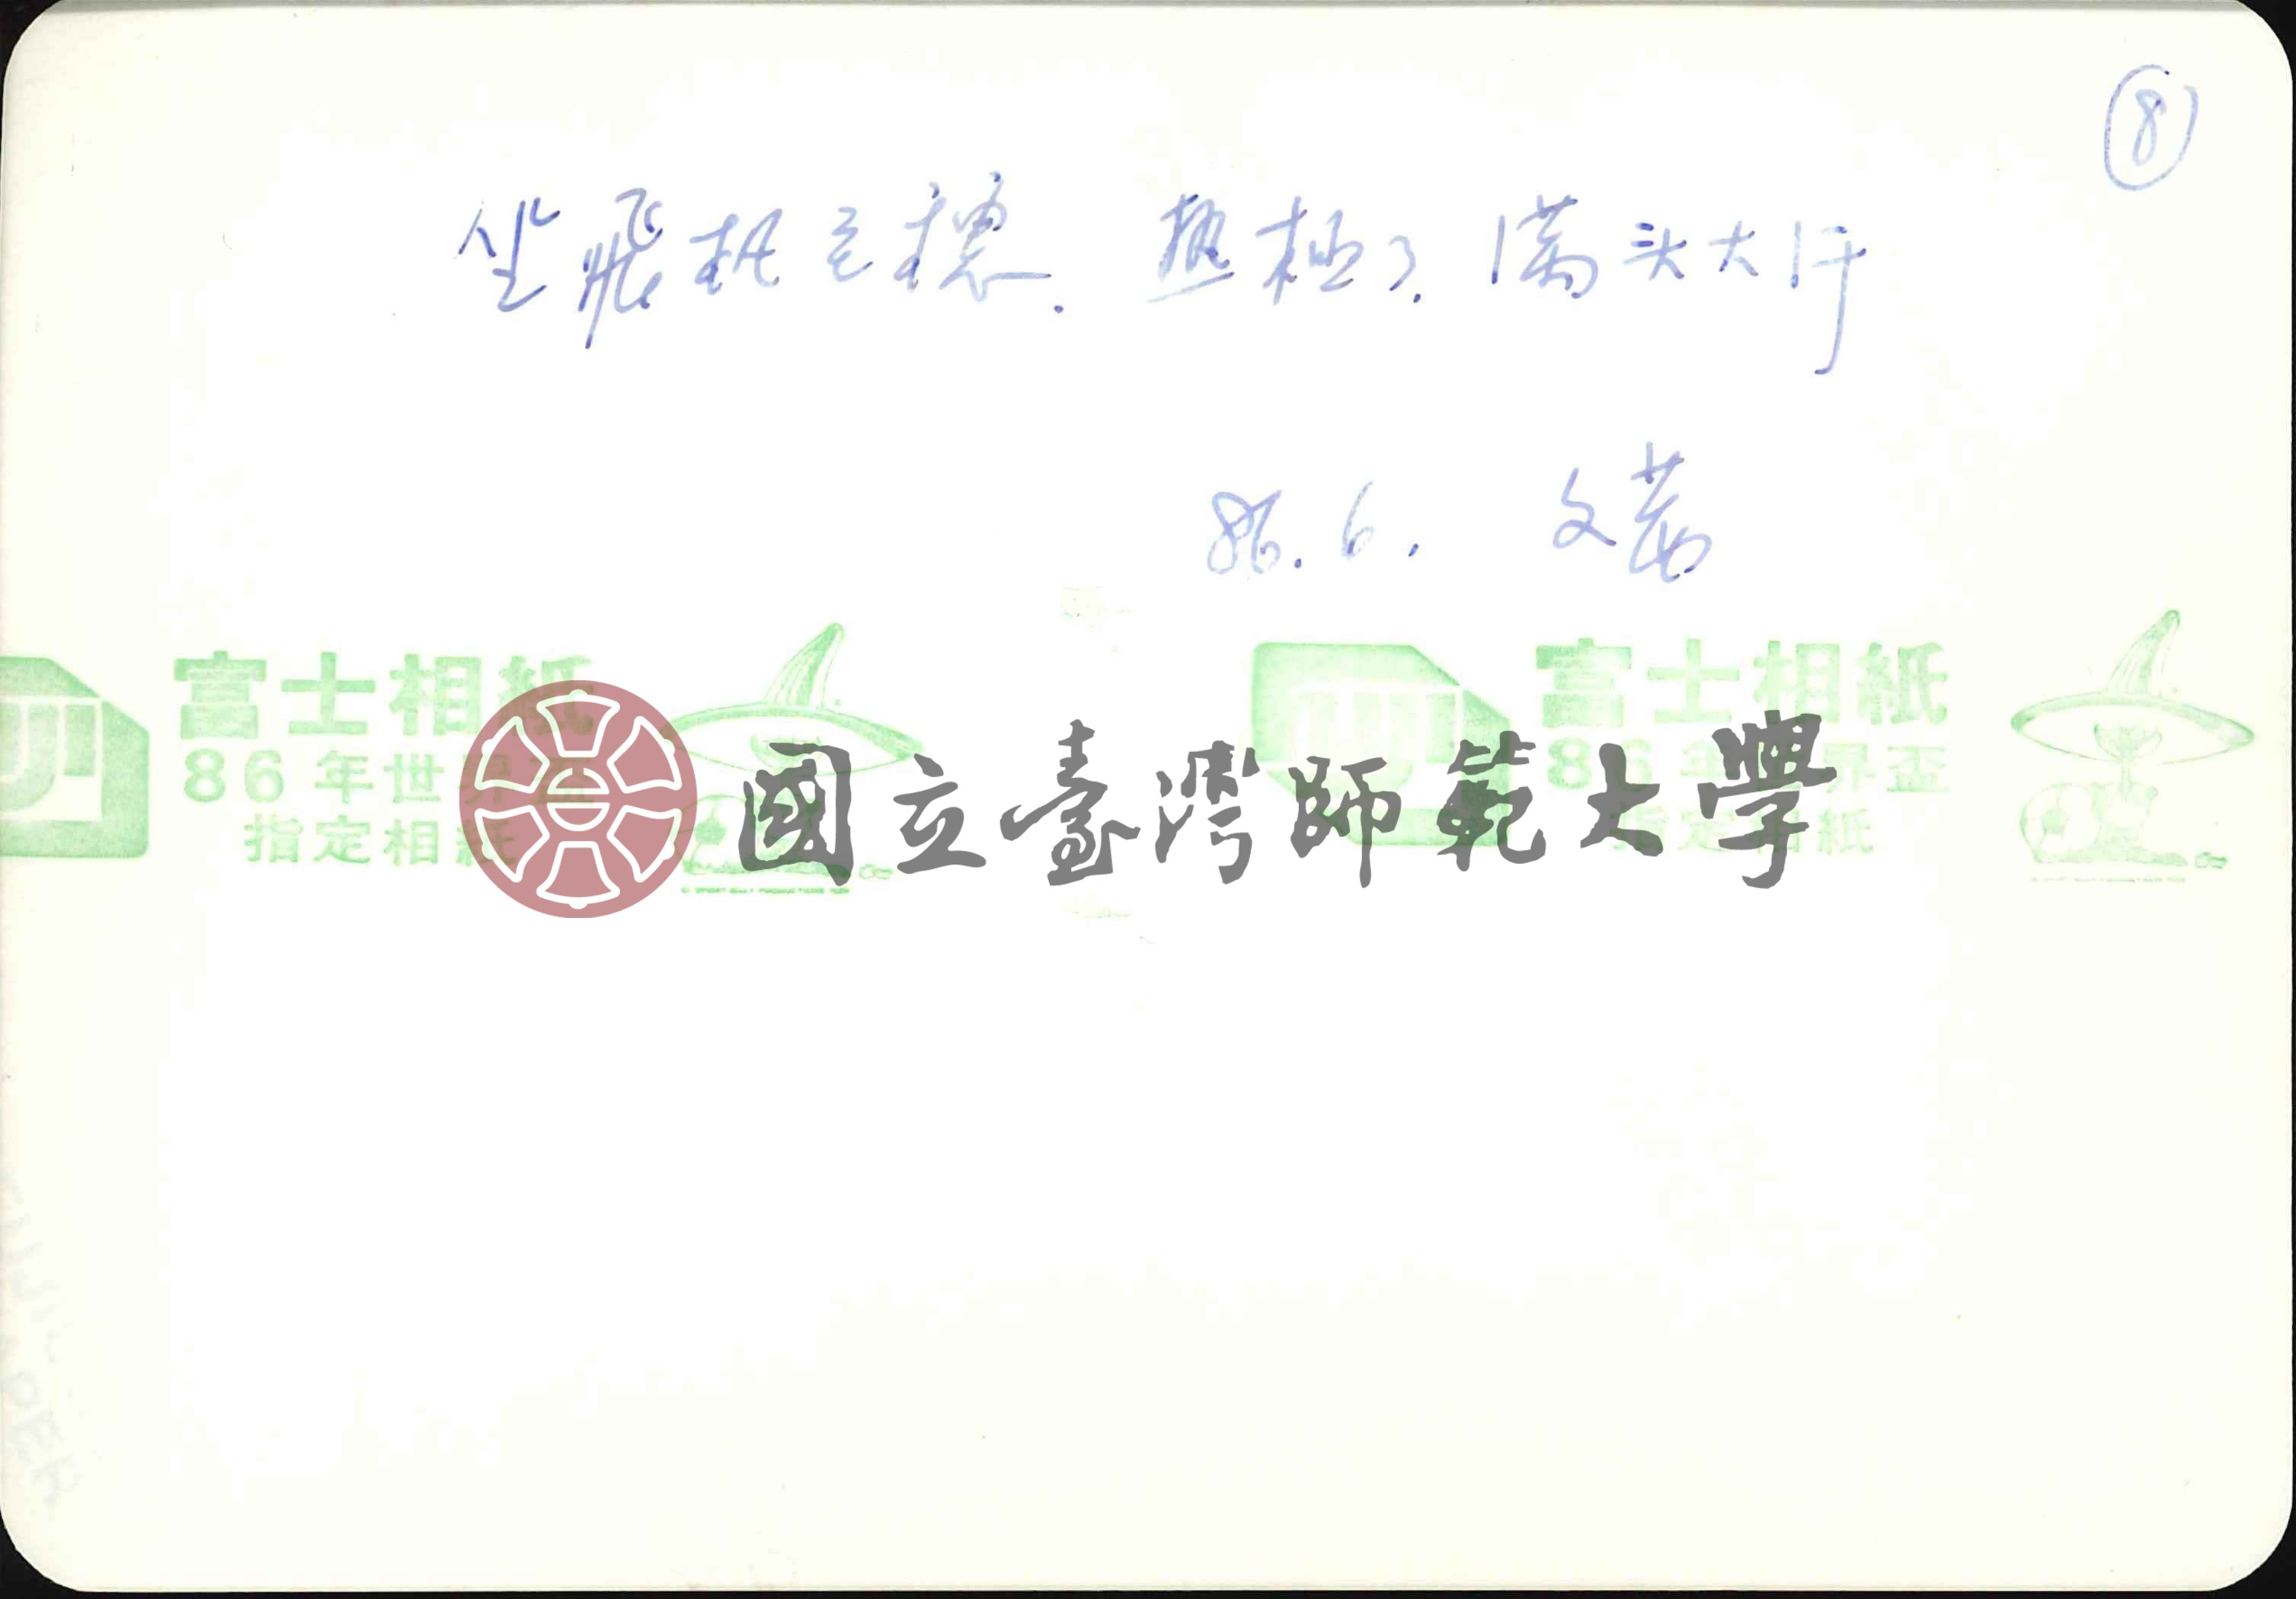 ⑧
坐飛机至穗. 热极了. 满头大汗
86. 6. 文蔷
富士相紙
86年世界盃
指定相紙
富士相紙
86年世界盃
指定相紙
國立臺灣師範大學